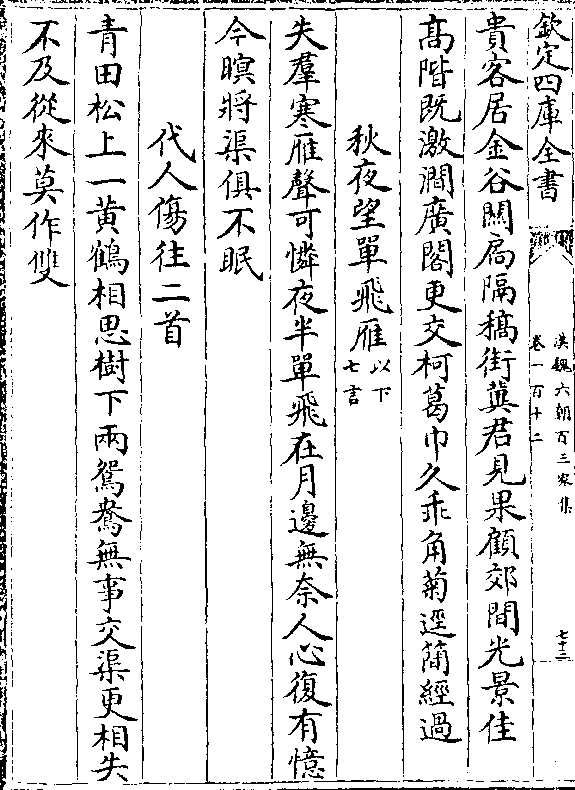 欽定四庫全書
漢魏六朝百三家集
卷一百十二
七十三
貴客居金谷關扃隔槁街冀君見果顧郊間光景佳
髙階既激澗廣閣更交柯葛巾久乖角菊逕簡經過
秋夜望單飛雁以下七言
失羣寒雁聲可憐夜半單飛在月邊無奈人心復有憶
今暝將渠俱不眠
代人傷往二首
青田松上一黄鶴相思樹下兩鴛鴦無事交渠更相失
不及從來莫作雙